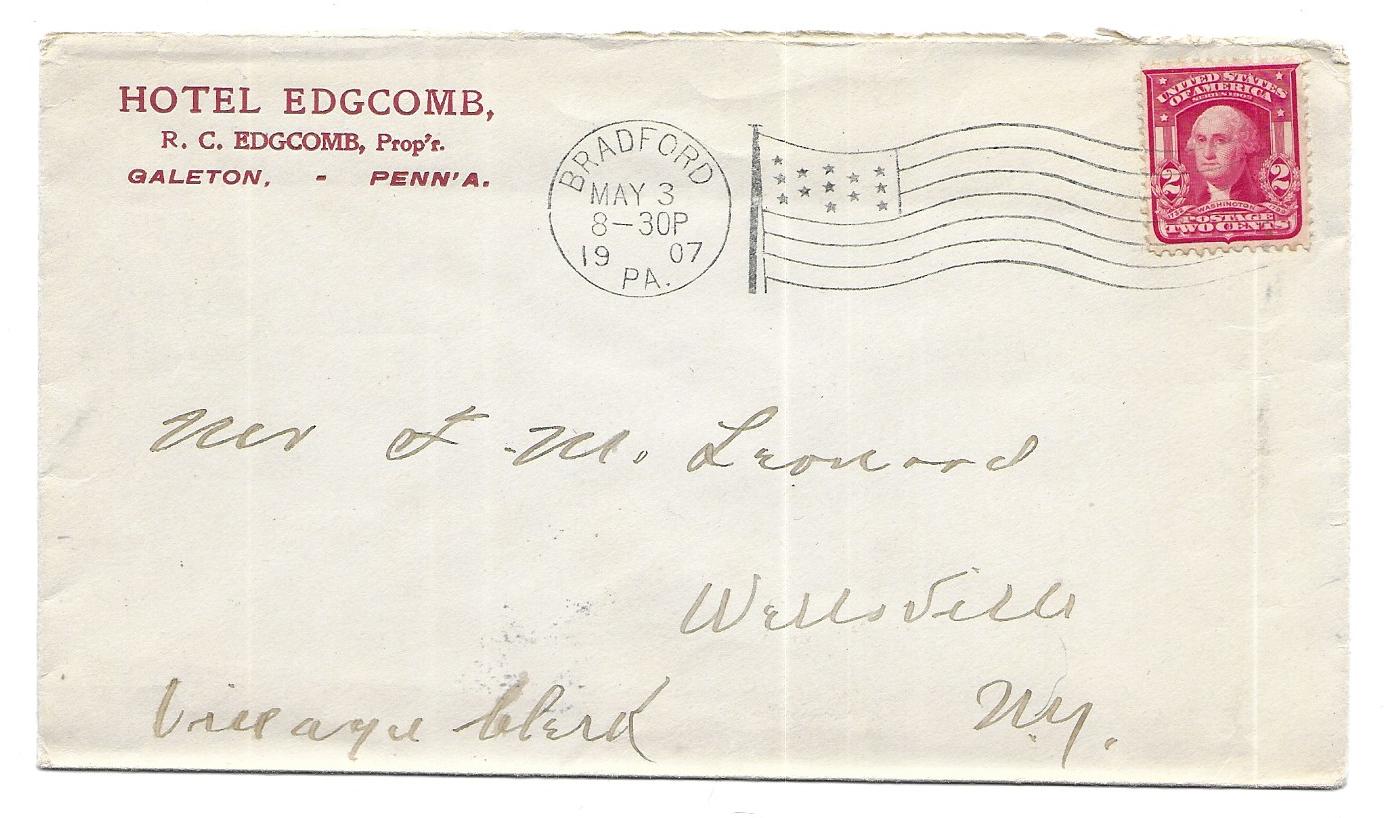 HOTEL EDGCOMB,
R. C. EDGCOMB, Prop'r.
GALETON, - PENN'A.
BRADFORD
MAY 3
8-30P
19 07
PA.
UNITED STATES
OF AMERICA
SERIES 1902
2 2
WASHINGTON
POSTAGE
TWO CENTS
Mr F. M. Leonard
Wellsville
Village Clerk N.Y.